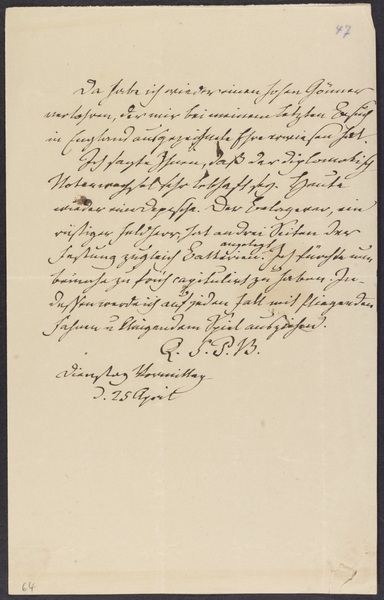 47
Da habe ich wieder einen hohen Gönner
verlohren, der mir bei meinem letzten Besuch
in England ausgezeichnete Ehre erwiesen hat.
Ich sagte Ihnen, daß der diplomatische
Notenwechsel sehr lebhaft sey. Heute
wieder eine Depesche. Der Belagerer, ein
rüstiger Feldherr, hat an drei Seiten der
Festung zugleich Batterien angelegt. Ich fürchte nun
beinahe zu früh capitulirt zu haben. In-
dessen werde ich auf jeden Fall mit fliegenden
Fahnen u klingendem Spiel ausziehen.
Dienstag Vormittag
d. 25 April
64